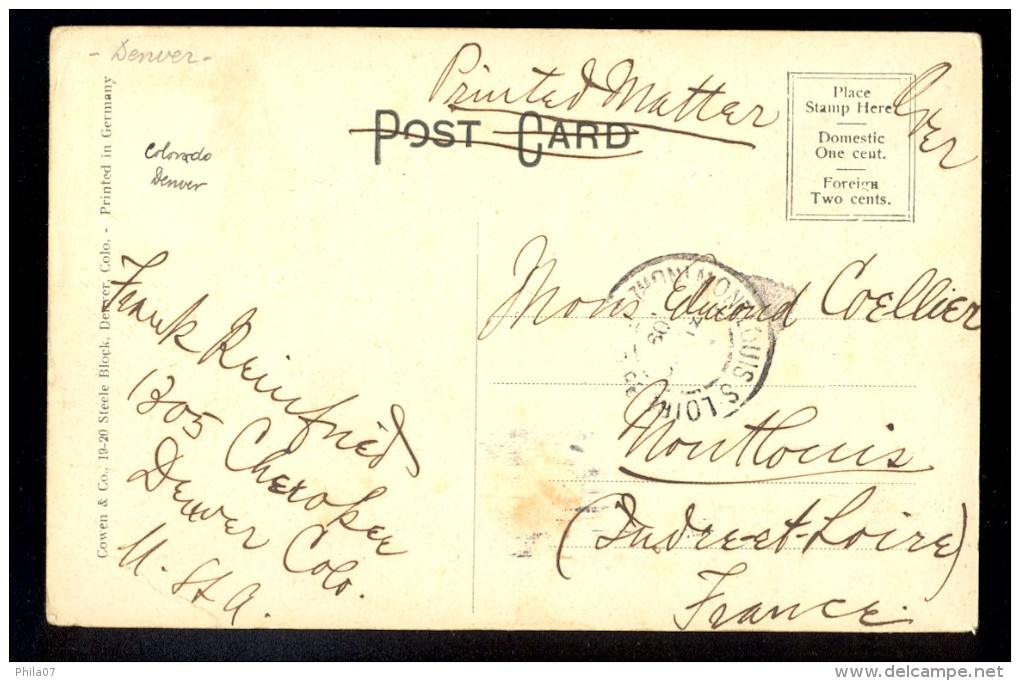 - Denver -
Printed Matter
Over
POST CARD
Place
Stamp Here
Domestic
One cent.
Foreign
Two cents.
Colorado
Denver
Cowen & Co., 19-20 Steele Block, Denver, Colo. - Printed in Germany
Frank Reinfried
1305 Cherokee
Denver Colo.
U. St A.
Mons Edmond Coellier
Montlouis
(Indre-et-Loire)
France.
MONTLOUIS S LOIRE
Phila07
delcampe.net